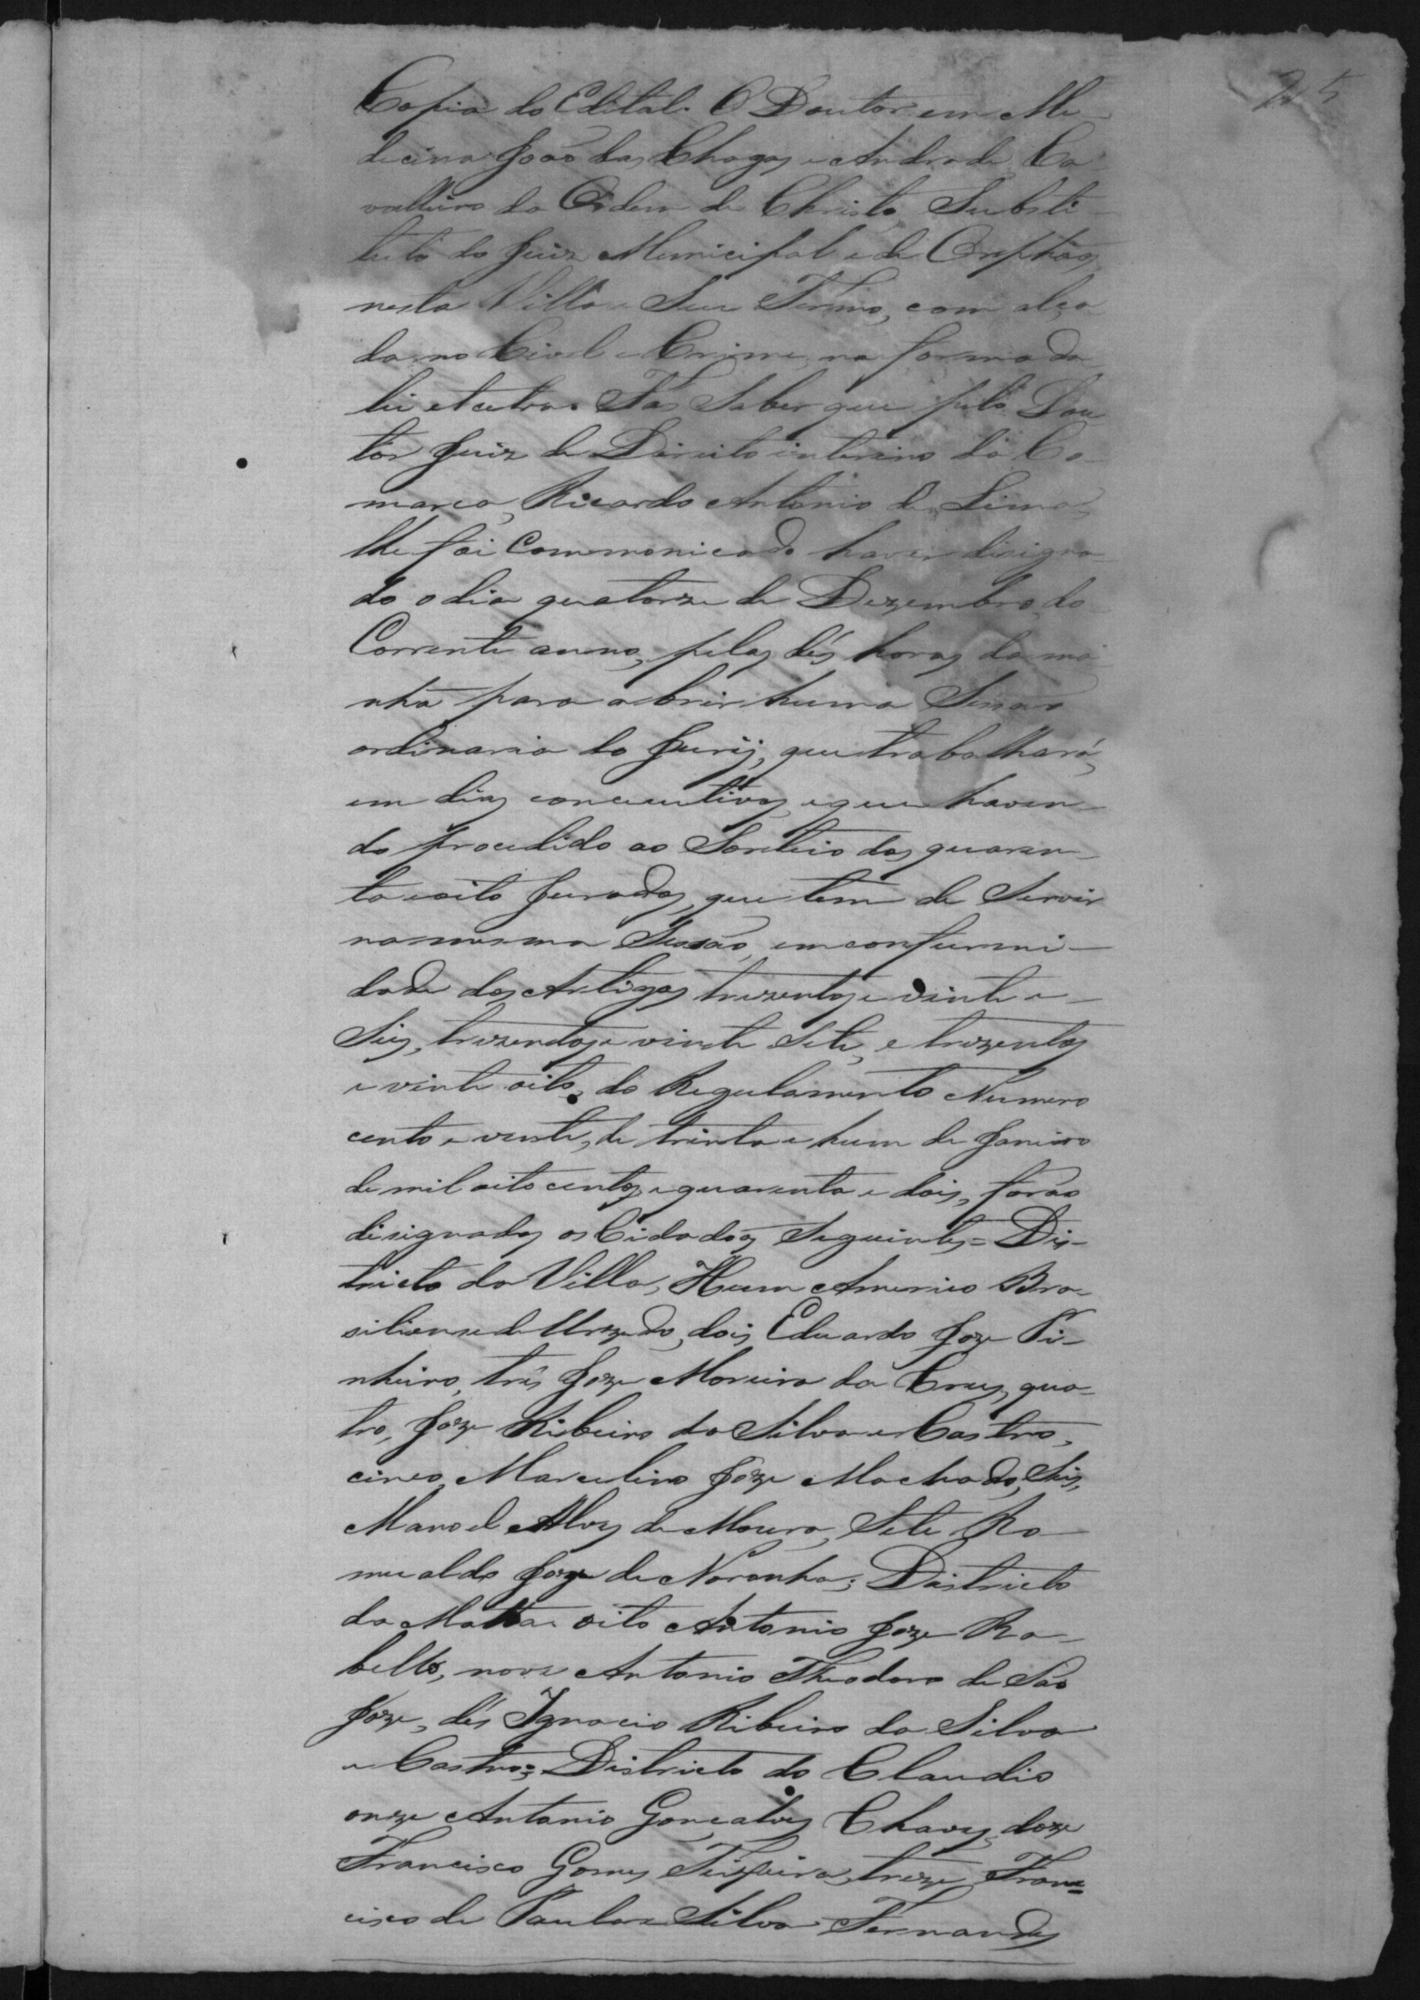 25
Copia do Edital. O Doutor em Me-
decina João das Chagas e Andrade, Ca-
valleiro da Ordem de Christo, Substi-
tuto do Juiz Municipal e de Orphãos
nesta Villa e Seu Termo, com alça-
da no Civel e Crime, na forma da
lei etcetra. Fas Saber que pelo Dou-
tor Juiz de Direito interino da Co-
marca, Ricardo Antonio de Lima,
lhe foi Communicado haver disigna-
do o dia quatorze de Dezembro do
Corrente anno, pelas dés horas da ma-
nhã para abrir huma Sessão
ordinaria do Jurij, que trabalhará,
em dias concecutivos, e que haven-
do procedido ao Sorteio dos quaren-
ta e oito Jurados, que tem de Servir
na mesma Sessão, em confurmi-
dade dos Artigos trezentos e vinte e
Seis, trezentos e vinte Sete, e trezentos
e vinte oito, do Regulamento Numero
cento e vinte, de trinta e hum de Janeiro
de mil oito centos e quarenta e dois, forão
disignados os Cidadãos Seguintes = Dis-
tricto da Villa, Hum Americo Bra-
siliense de Urzedo, dois Eduardo Joze Pi-
nheiro, três Joze Moreira da Crus, qua-
tro, Joze Ribeiro da Silva e Castro,
cinco Marcelino Joze Machado, Seis,
Manoel Alves de Moura, Sete Ro-
mualdo Joze de Noronha; Districto
da Matta oito Antonio Joze Ra-
bello, nove Antonio Theodoro de São
Joze, dés Ignacio Ribeiro da Silva
e Castro; Districto do Claudio
onze Antonio Gonçalves Chaves, doze
Francisco Gomes Teixeira, treze Fran=
cisco de Paula e Silva Fernandes